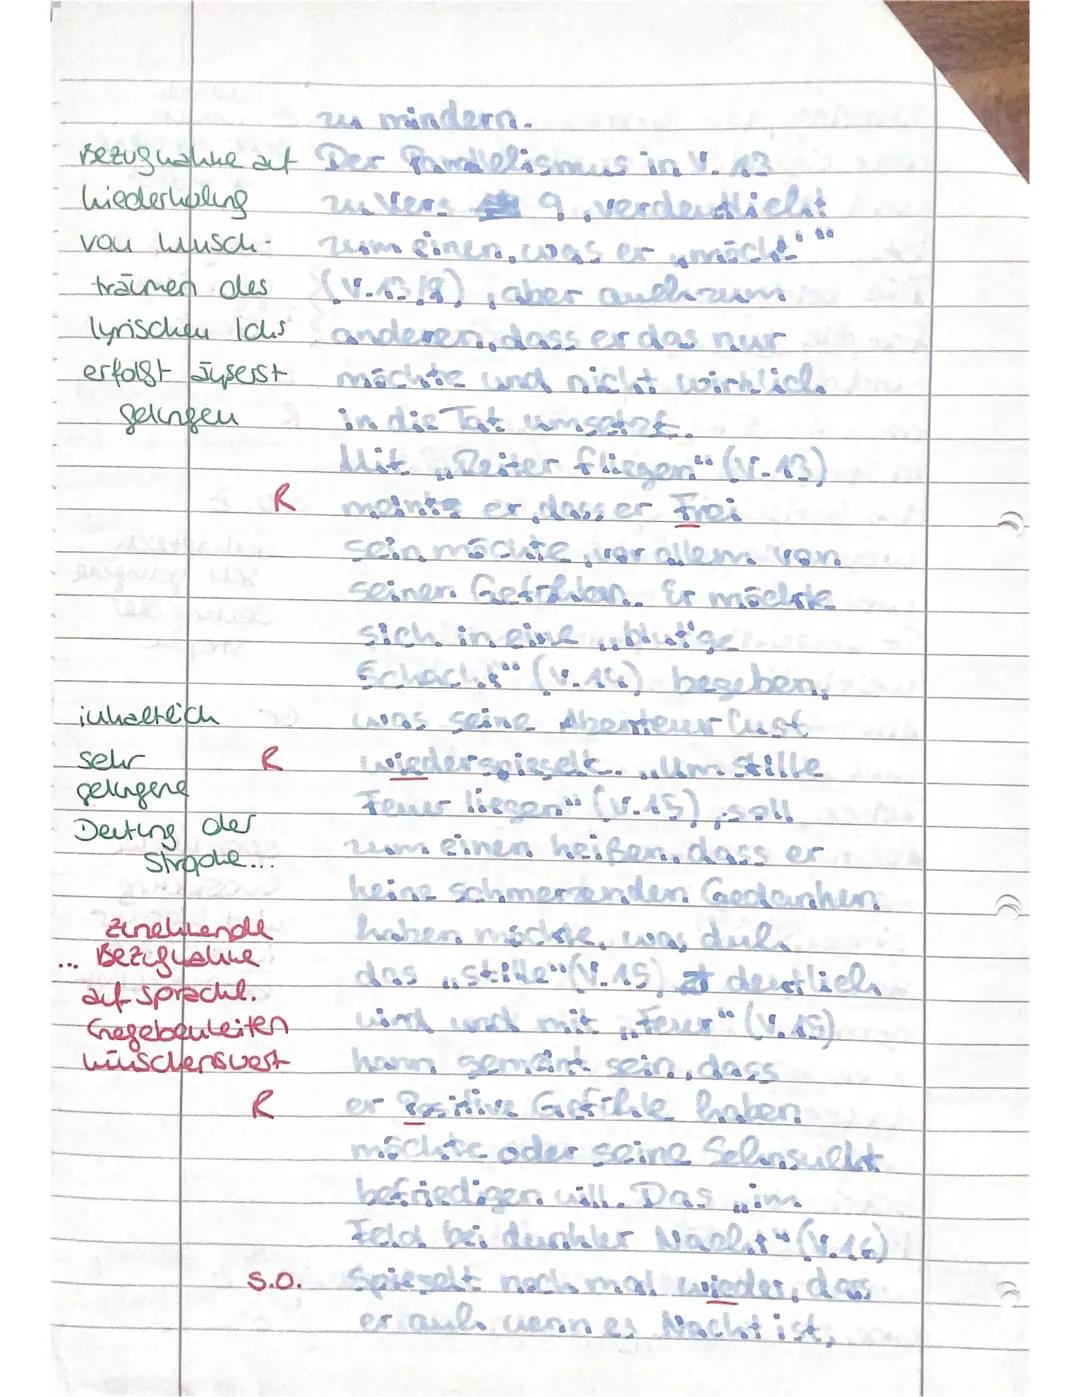 zu mindern.
Bezugnahme auf Der Parallelismus in V. 13
Wiederholung zu Vers 9, verdeutlicht
von Wunsch- zum einen, was er „möcht'"
träumen des (V.13/9), aber auch zum
lyrischen Ichs anderen, dass er das nur
erfolgt äußerst möchte und nicht wirklich
gelungen in die Tat umsetzt.
Mit „Reiter fliegen" (V.13)
R meinte er, dass er Frei
sein möchte, vor allem von
seinen Gefühlen. Er möchte
sich in eine „blut'ge
Schacht" (V.14) begeben,
inhaltlich was seine Abenteuer Lust
sehr R wiederspiegelt. „Um stille
gelungene Feuer liegen" (V.15), soll
Deutung der zum einen heißen, dass er
Strophe... keine schmerzenden Gedanken
zunehmende haben möchte, was duch
... Bezugnahme das „stille" (V.15) deutlich
auf sprachl. wird und mit „Feuer" (V.15)
Gegebenheiten kann gemeint sein, dass
wünschenswert
R er Positive Gefühle haben
möchte oder seine Sehnsucht
befriedigen will. Das „im
Feld bei dunkler Nacht" (V.16)
s.o. Spiegelt noch mal wieder, dass
er auch wenn es Nacht ist,